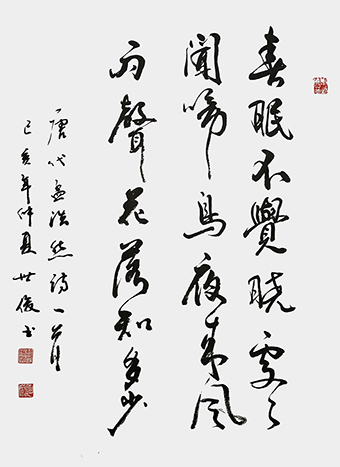 春眠不覺曉處々
聞啼鳥夜來風
雨聲花落知多少
唐代孟浩然詩一首
己亥年仲夏世俊書